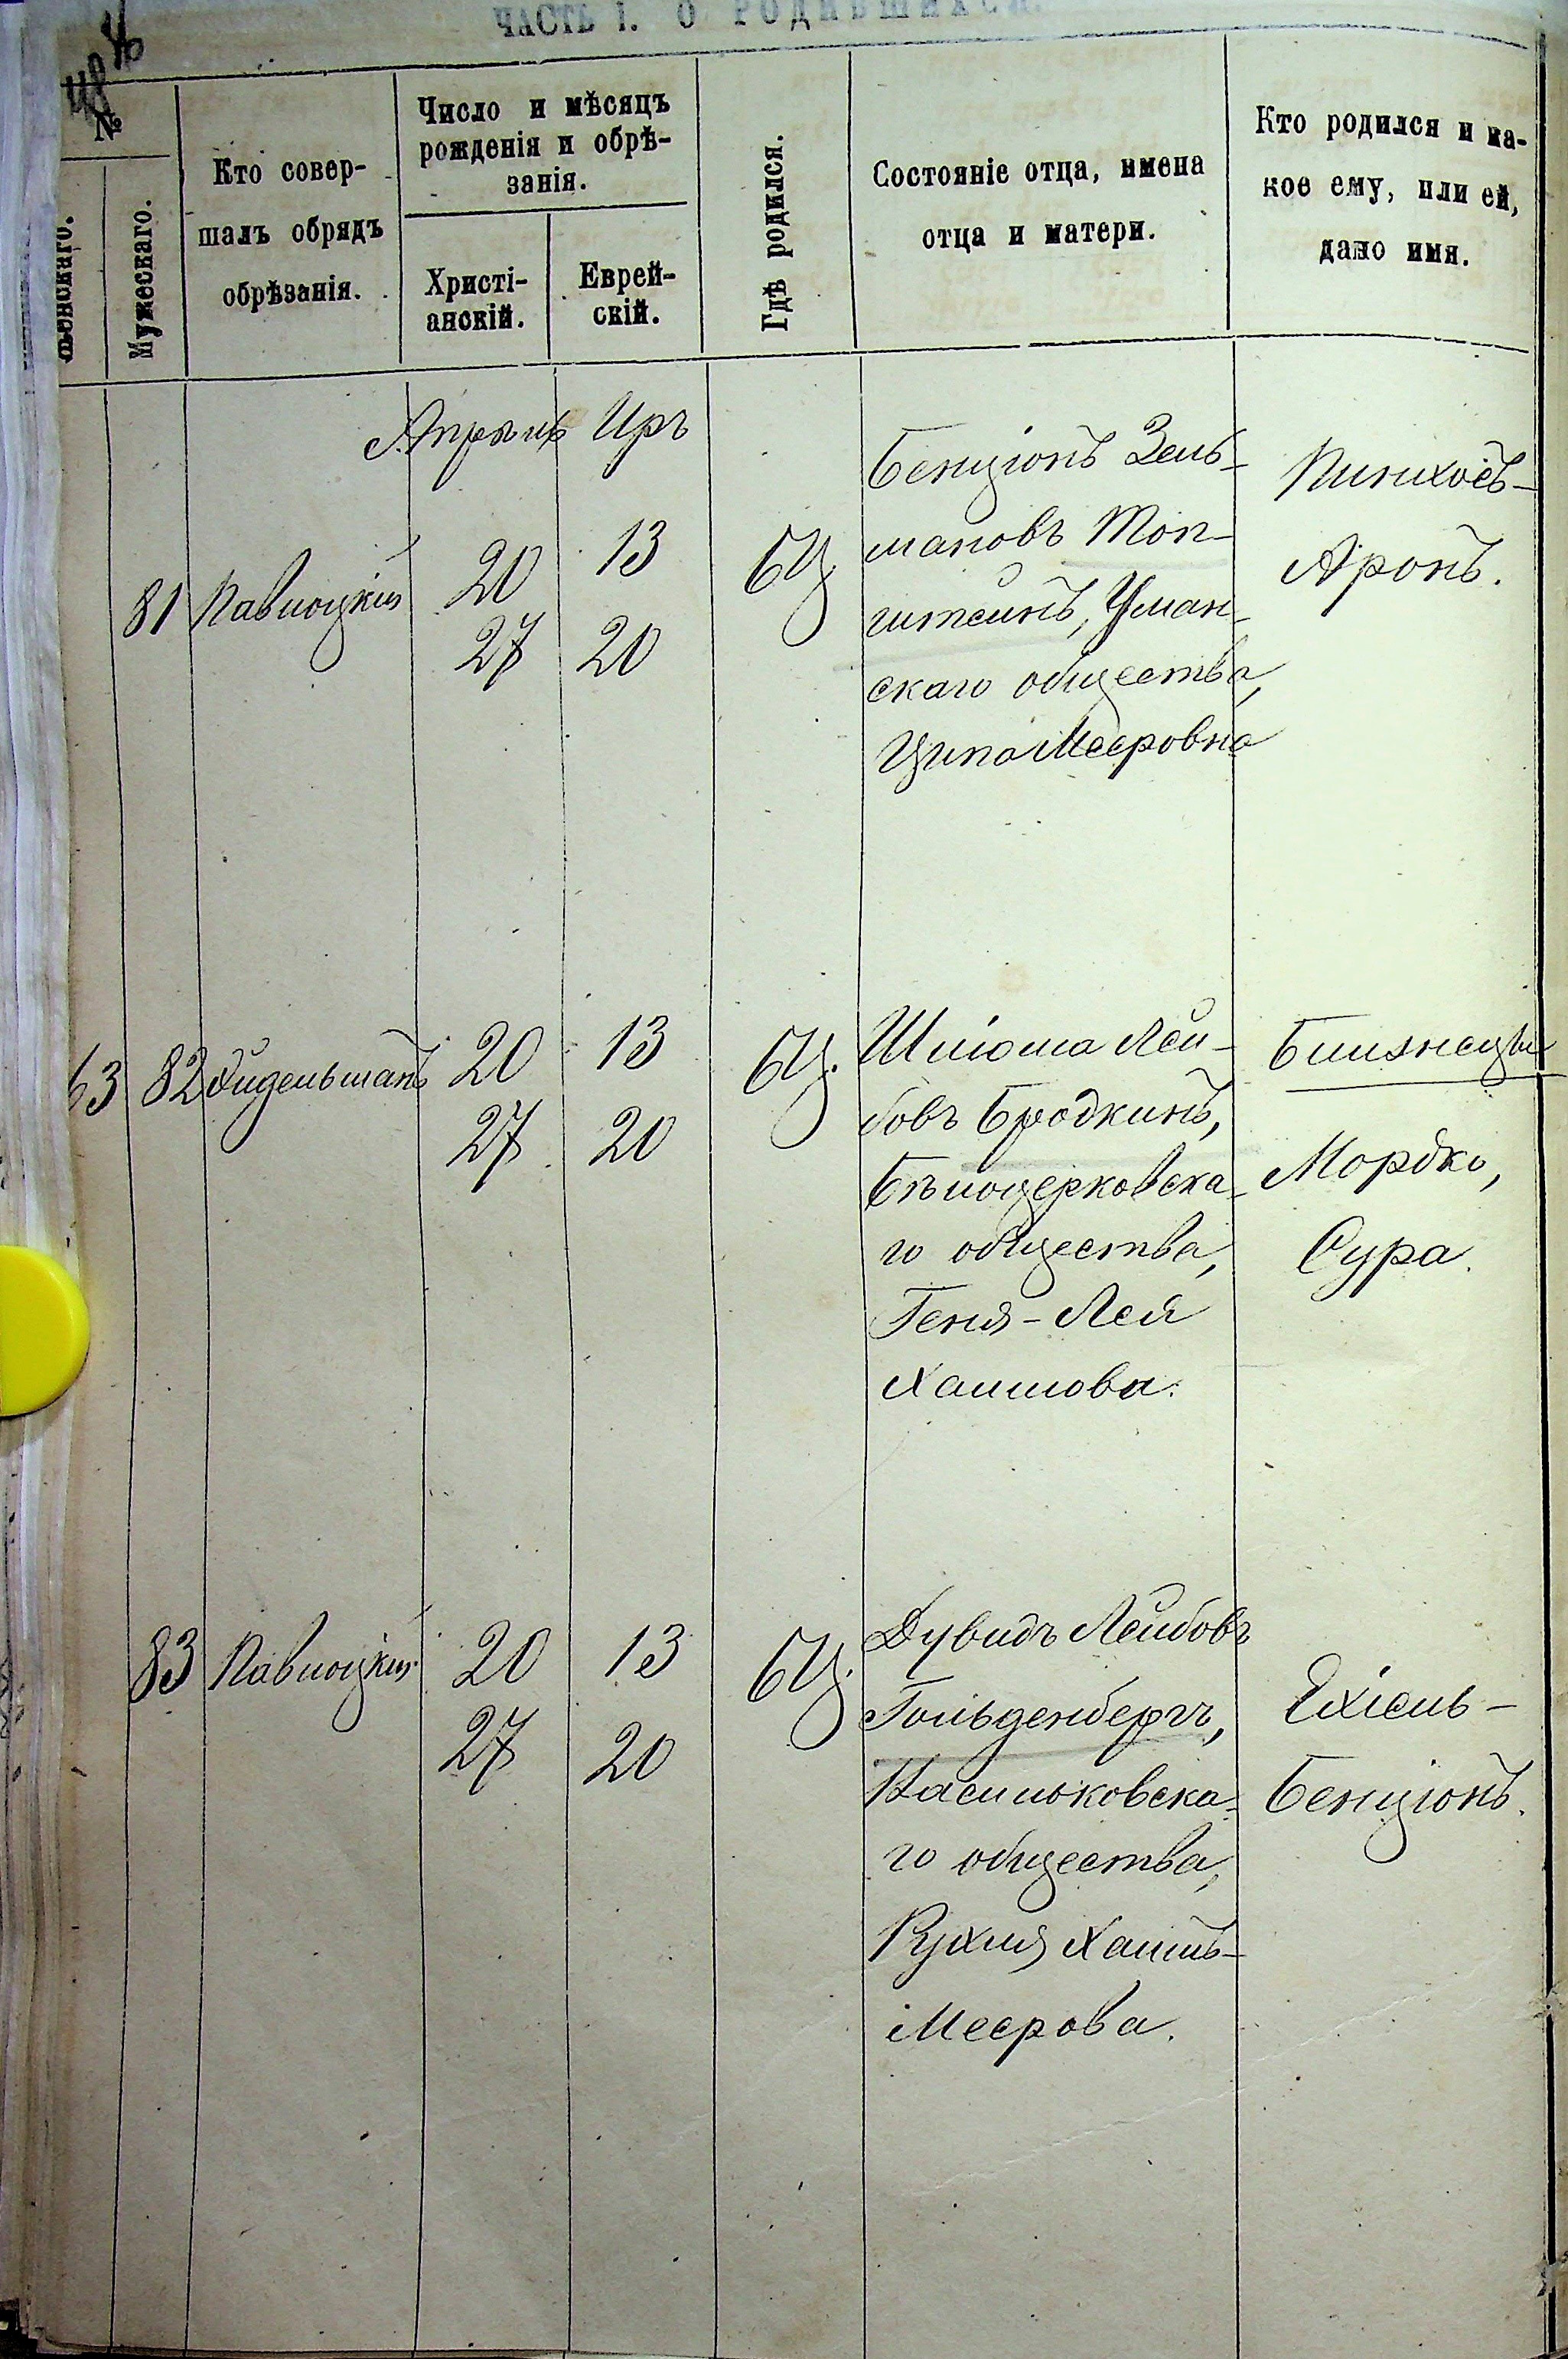 ЧАСТЬ I. О РОДИВШИХСЯ.
48
№
Женскаго.
Мужескаго.
Кто совер-
шалъ обрядъ
обрѣзанія.
Число и мѣсяцъ
рожденія и обрѣ-
занія.
Христі-
анскій.
Еврей-
скій.
Гдѣ родился.
Состояніе отца, имена
отца и матери.
Кто родился и ка-
кое ему, или ей,
дано имя.
Апрель Иръ
81 Павлоцкій 20 13 бЦ
27 20
Бенціонъ Зель-
мановъ Топ-
штейнъ, Уман-
скаго общества,
Ципа Меeровна
Пинхосъ-
Аронъ.
63 82 Фидельманъ 20 13 бЦ.
27 20
Шлиома Лей-
бовъ Бродкинъ,
Бѣлоцерковска-
го общества,
Геня-Лея
Хаимова.
Близнецы
Мордко,
Сура.
83 Павлоцкій 20 13 бЦ.
27 20
Дувидъ Лейбовъ
Гольденбергъ,
Васильковска-
го общества,
Рухля Хаимъ-
Меерова.
Ехіель-
Бенціонъ.